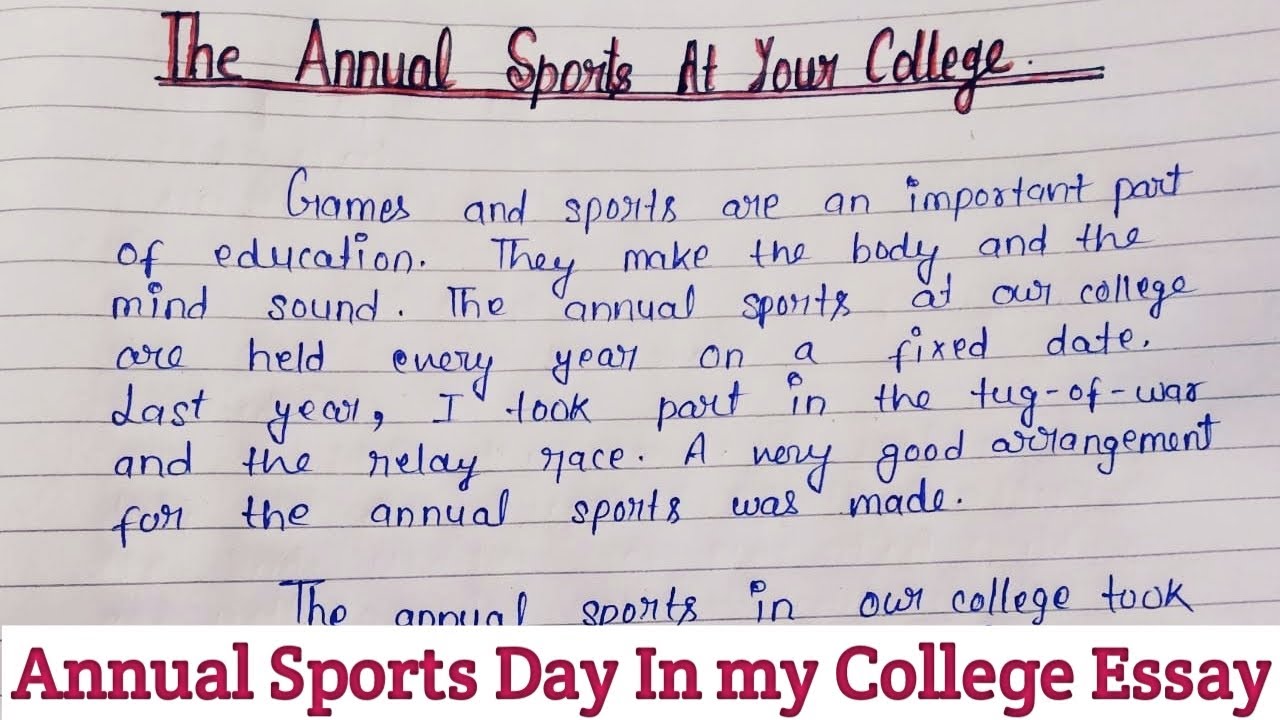 The Annual Sports At Your College.
Games and sports are an important part
of education. They make the body and the
mind sound. The annual sports at our college
are held every year on a fixed date.
Last year, I took part in the tug-of-war
and the relay race. A very good arrangement
for the annual sports was made.
The annual sports in our college took
Annual Sports Day In my College Essay